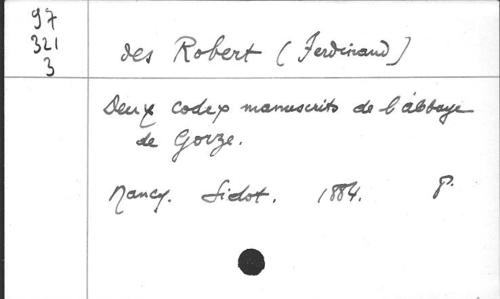 97
321
3
des Robert (Ferdinand)
Deux codex manuscrits de l'abbaye
de Gorze.
Nancy. Sidot. 1884. 8°.